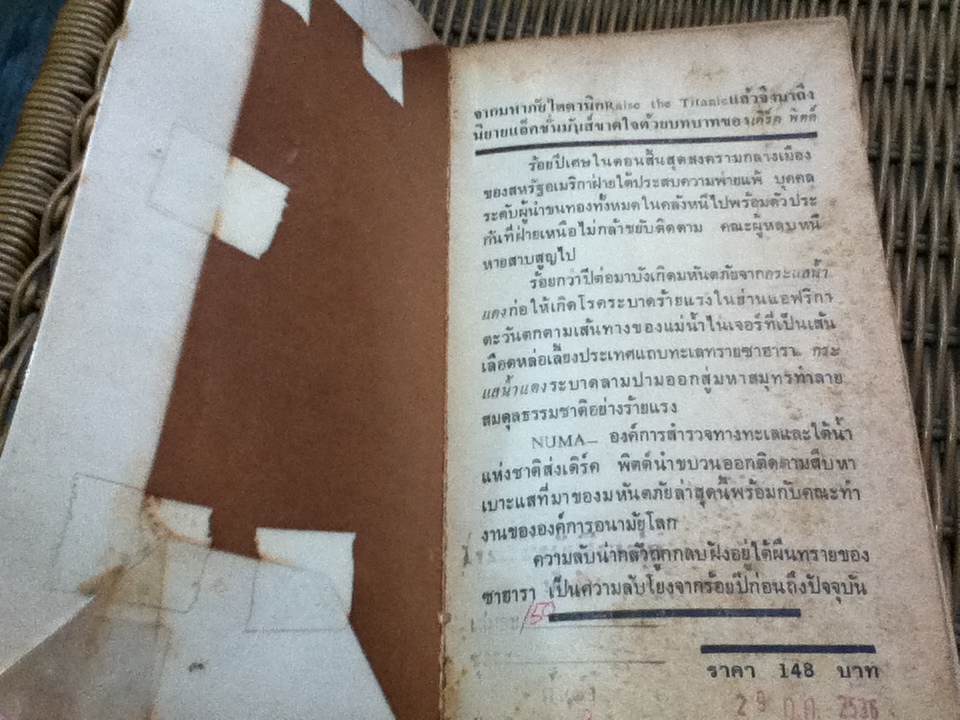 จากมหาภัยไตตานิคRaise the Titanicแล้วจึงมาถึง
นิยายแอ็คชั่นมันส์ขาดใจด้วยบทบาทของเดิร์ค พิตต์
ร้อยปีเศษในตอนสิ้นสุดสงครามกลางเมือง
ของสหรัฐอเมริกาฝ่ายใต้ประสบความพ่ายแพ้ บุคคล
ระดับผู้นำขนทองทั้งหมดในคลังหนีไปพร้อมตัวประ
กันที่ฝ่ายเหนือไม่กล้าขยับติดตาม คณะผู้หลบหนี
หายสาบสูญไป
ร้อยกว่าปีต่อมาบังเกิดมหันตภัยจากกระแสน้ำ
แดงก่อให้เกิดโรคระบาดร้ายแรงในย่านแอฟริกา
ตะวันตกตามเส้นทางของแม่น้ำไนเจอร์ที่เป็นเส้น
เลือดหล่อเลี้ยงประเทศแถบทะเลทรายซาฮารา กระ
แสน้ำแดงระบาดลามปามออกสู่มหาสมุทรทำลาย
สมดุลธรรมชาติอย่างร้ายแรง
NUMA– องค์การสำรวจทางทะเลและใต้น้ำ
แห่งชาติส่งเดิร์ค พิตต์นำขบวนออกติดตามสืบหา
เบาะแสที่มาของมหันตภัยล่าสุดนี้พร้อมกับคณะทำ
งานขององค์การอนามัยโลก
ความลับน่ากลัวถูกกลบฝังอยู่ใต้ผืนทรายของ
ซาฮารา เป็นความลับโยงจากร้อยปีก่อนถึงปัจจุบัน
ราคา 148 บาท
29 ก.ค. 2536